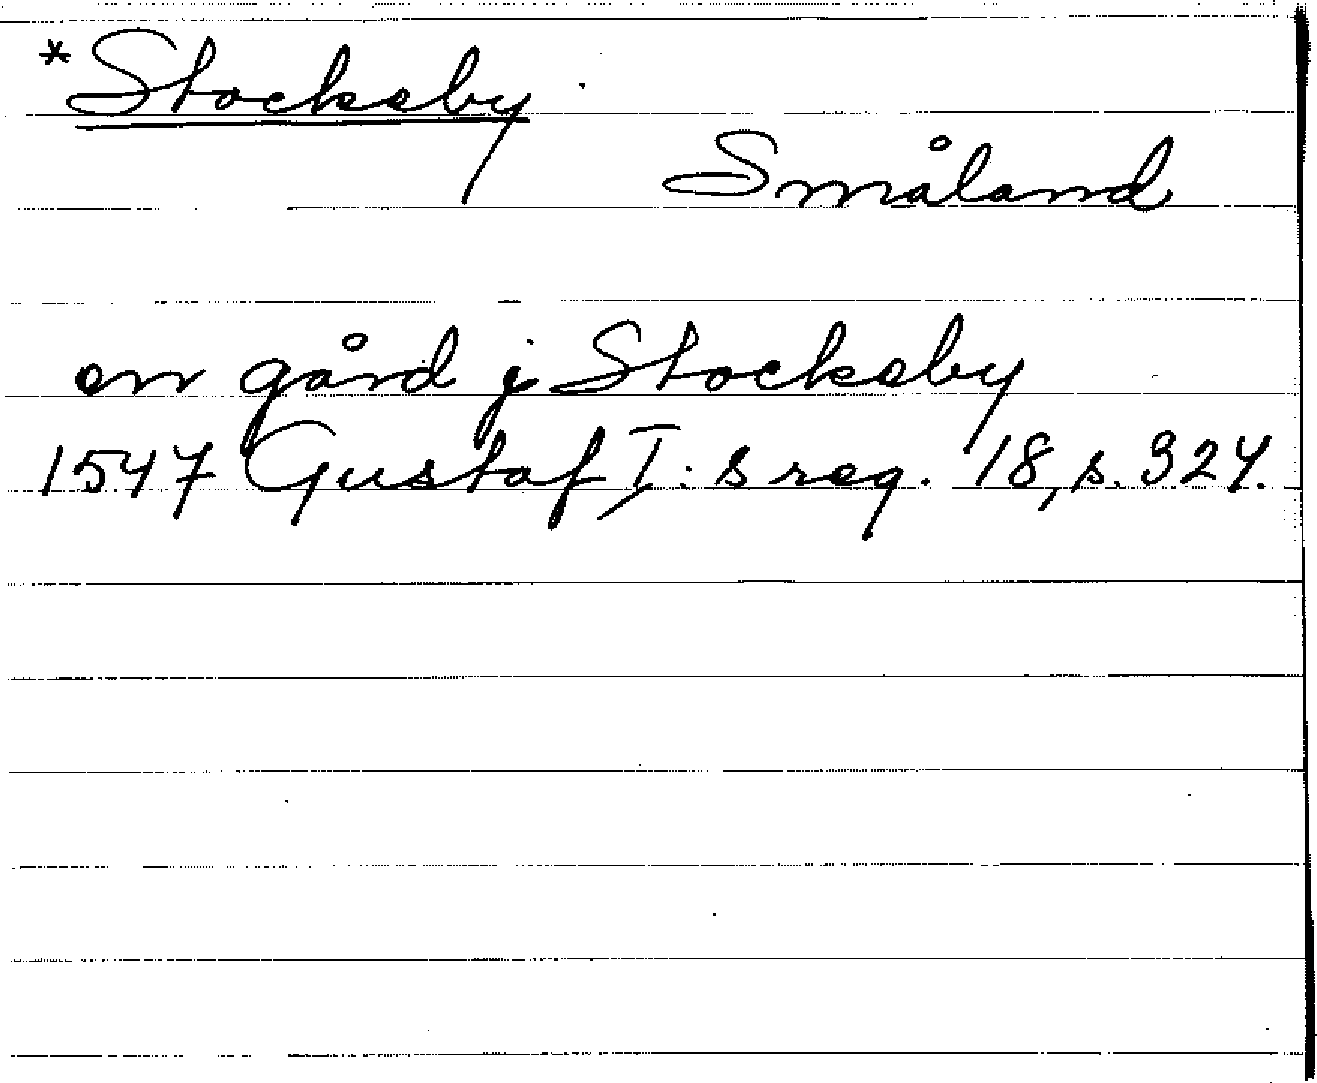 *Stocksby
Småland
en gård j Stocksby
1547 Gustaf I:s reg. 18, s. 324.